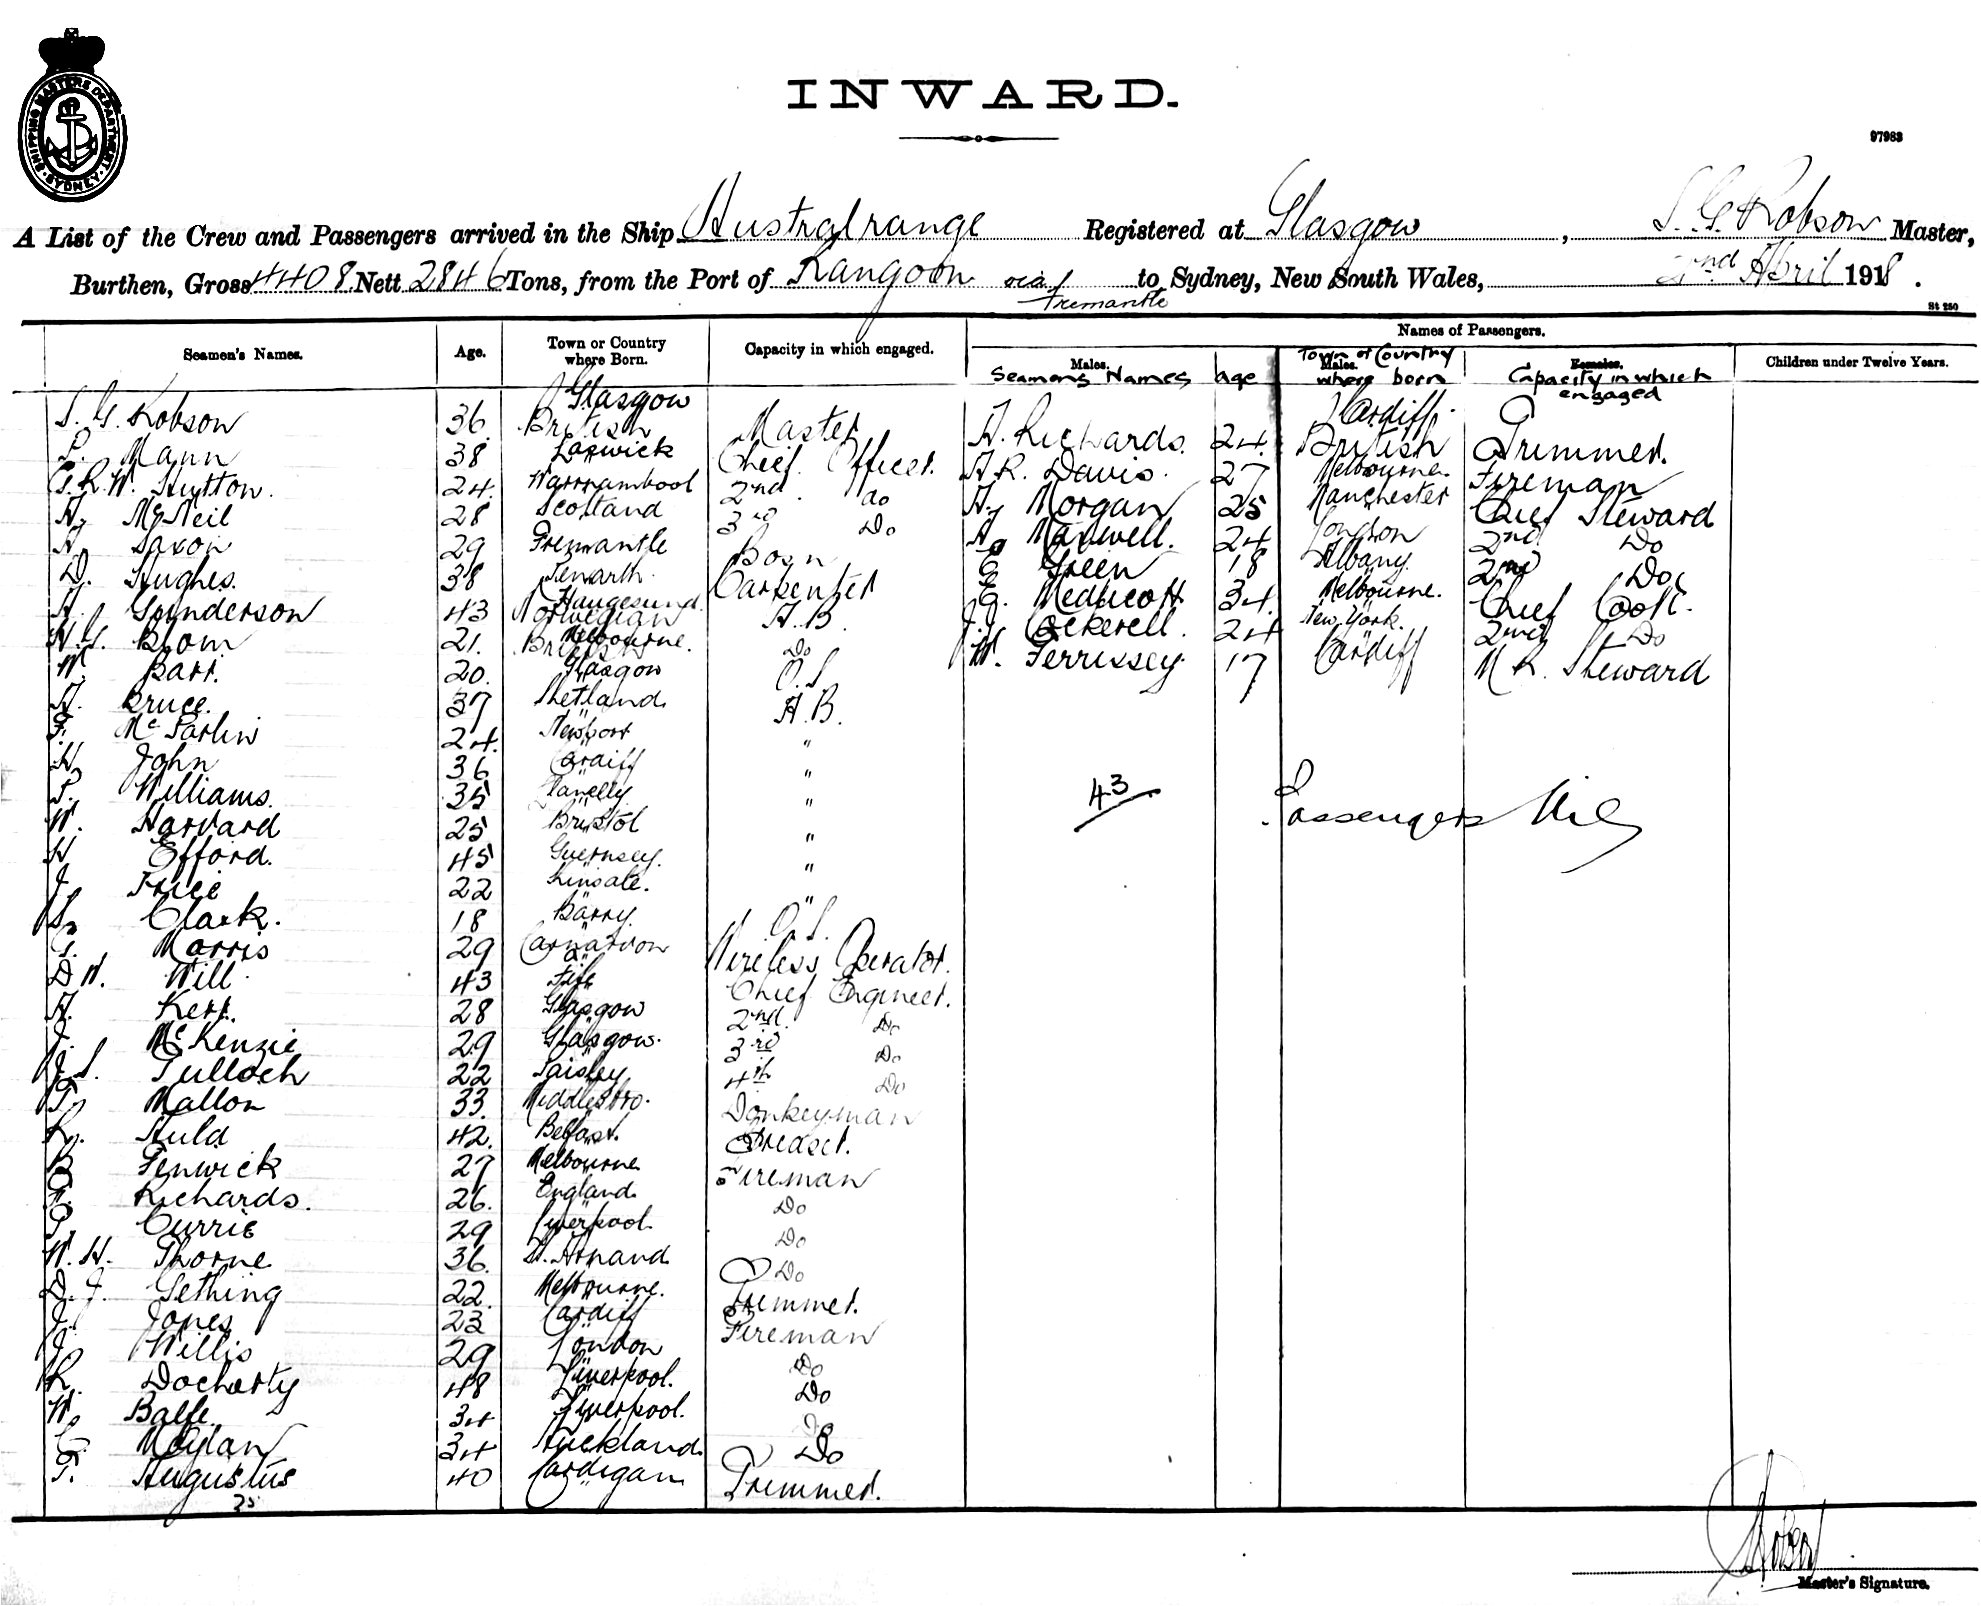 SHIPPING MASTERS DEPARTMENT. SYDNEY.
INWARD.
97983
A List of the Crew and Passengers arrived in the Ship Australrange Registered at Glasgow, S. G. Robson Master,
Burthen, Gross 4408 Nett 2846 Tons, from the Port of Rangoon via Fremantle to Sydney, New South Wales, 2nd April 1918.
St 250
Names of Passengers.
Seamen's Names. Age. Town or Country where Born. Capacity in which engaged. Males. Males. Females. Children under Twelve Years.
Seamens Names age Town or Country where born Capacity in which engaged
S. G. Robson 36 Glasgow British Master
P. Mann 38 Lerwick Chief Officer
G. R. W. Hutton. 24 Warrnambool 2nd do
A. McNeil 28 Scotland 3rd Do
A. Saxon 29 Fremantle Bosn
D. Hughes. 38 Penarth Carpenter
A. Gunderson 43 Haugesund Norwegian A.B.
H. G. Blom 21. Melbourne British Do
W. Barr. 20. Glasgow O.S.
A. Bruce. 37 Shetland A.B.
F. McParlin 24. Newport "
H. John 36 Cardiff "
P. Williams. 35 Llanelly "
W. Harvard 25 Bristol "
H. Efford. 45 Guernsey. "
J. Price 22 Kinsale. "
S. Clark. 18 Barry. O.S.
G. Morris 29 Carnarvon Wireless Operator.
D W. Will 43 Fife Chief Engineer.
A. Kerr. 28 Glasgow 2nd. Do
J. McKenzie 29 Glasgow. 3rd Do
J. S. Tulloch 22 Paisley 4th Do
T. Mallon 33. Middlesbro. Donkeyman
R. Auld 42. Belfast. Greaser.
B Fenwick 27 Melbourne Fireman
F. Richards. 26. England. Do
P. Currie 29 Liverpool. Do
W. H. Thorne 36. St. Arnaud. Do
D. J. Gething 22. Melbourne. Trimmer.
J. Jones 23 Cardiff Fireman
J. Willis 29 London Do
R. Docherty 48 Liverpool. Do
W. Balfe 34 Liverpool. Do
C. Moylan 34 Auckland. Do
T. Augustus 40 Cardigan Trimmer.
35
A. Richards. 24. Cardiff. British Trimmer.
A R. Davis. 27 Melbourne. Fireman
A. Morgan 25 Manchester Chief Steward
A. Maxwell. 24 London 2nd Do
E Green 18 Albany. 2nd Do
E. Medlicott 34. Melbourne. Chief Cook.
J. J. Cockerell. 24 New York. 2nd Do
W. Ferrissey. 17 Cardiff M R. Steward
43
Passengers Nil
Master's Signature.